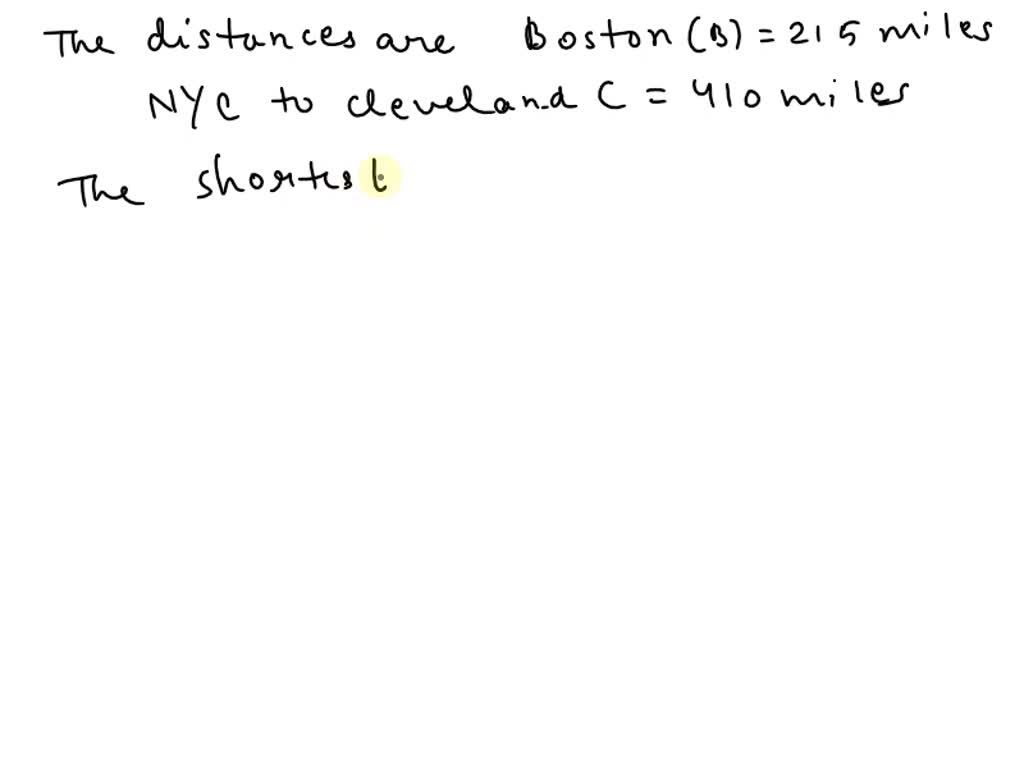 The distances are Boston (B) = 215 miles
NYC to cleveland C = 410 miles
The shortest